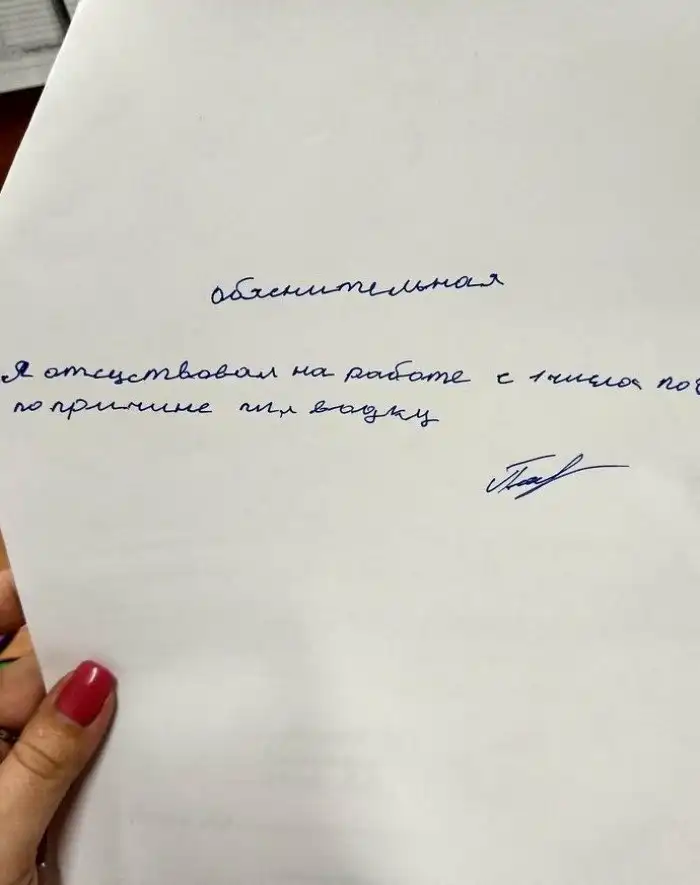 обяснительная
Я отсуствовал на работе с 1 числа по
по причине пил водку